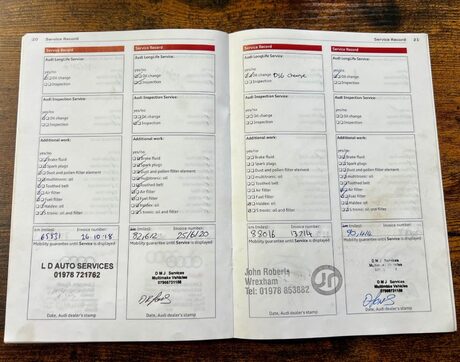 20 Service Record
Service Record
Audi LongLife Service:
yes/no
Oil change
Inspection
Audi Inspection Service:
yes/no
Oil change
Inspection
Additional work:
yes/no
Brake fluid
Spark plugs
Dust and pollen filter element
multitronic: oil
Toothed belt
Air filter
Fuel filter
Haldex: oil
S tronic: oil and filter
km (miles): Invoice number:
26-10-18
Mobility guarantee until Service is displayed
L D AUTO SERVICES
01978 721762
Date, Audi dealer's stamp
Service Record
Audi LongLife Service:
yes/no
Oil change
Inspection
Audi Inspection Service:
yes/no
Oil change
Inspection
Additional work:
yes/no
Brake fluid
Spark plugs
Dust and pollen filter element
multitronic: oil
Toothed belt
Air filter
Fuel filter
Haldex: oil
S tronic: oil and filter
km (miles): Invoice number:
25/6/20
Mobility guarantee until Service is displayed
D M J Services
Multimake Vehicles
Date, Audi dealer's stamp
Service Record 21
Service Record
Audi LongLife Service:
yes/no
Oil change DSG change
Inspection
Audi Inspection Service:
yes/no
Oil change
Inspection
Additional work:
yes/no
Brake fluid
Spark plugs
Dust and pollen filter element
multitronic: oil
Toothed belt
Air filter
Fuel filter
Haldex: oil
S tronic: oil and filter
km (miles): Invoice number:
88016 13714
Mobility guarantee until Service is displayed
John Roberts
Wrexham
Tel: 01978 853882
Date, Audi dealer's stamp
Service Record
Audi LongLife Service:
yes/no
Oil change
Inspection
Audi Inspection Service:
yes/no
Oil change
Inspection
Additional work:
yes/no
Brake fluid
Spark plugs
Dust and pollen filter element
multitronic: oil
Toothed belt
Air filter
Fuel filter
Haldex: oil
S tronic: oil and filter
km (miles): Invoice number:
Mobility guarantee until Service is displayed
D M J Services
Multimake Vehicles
Date, Audi dealer's stamp